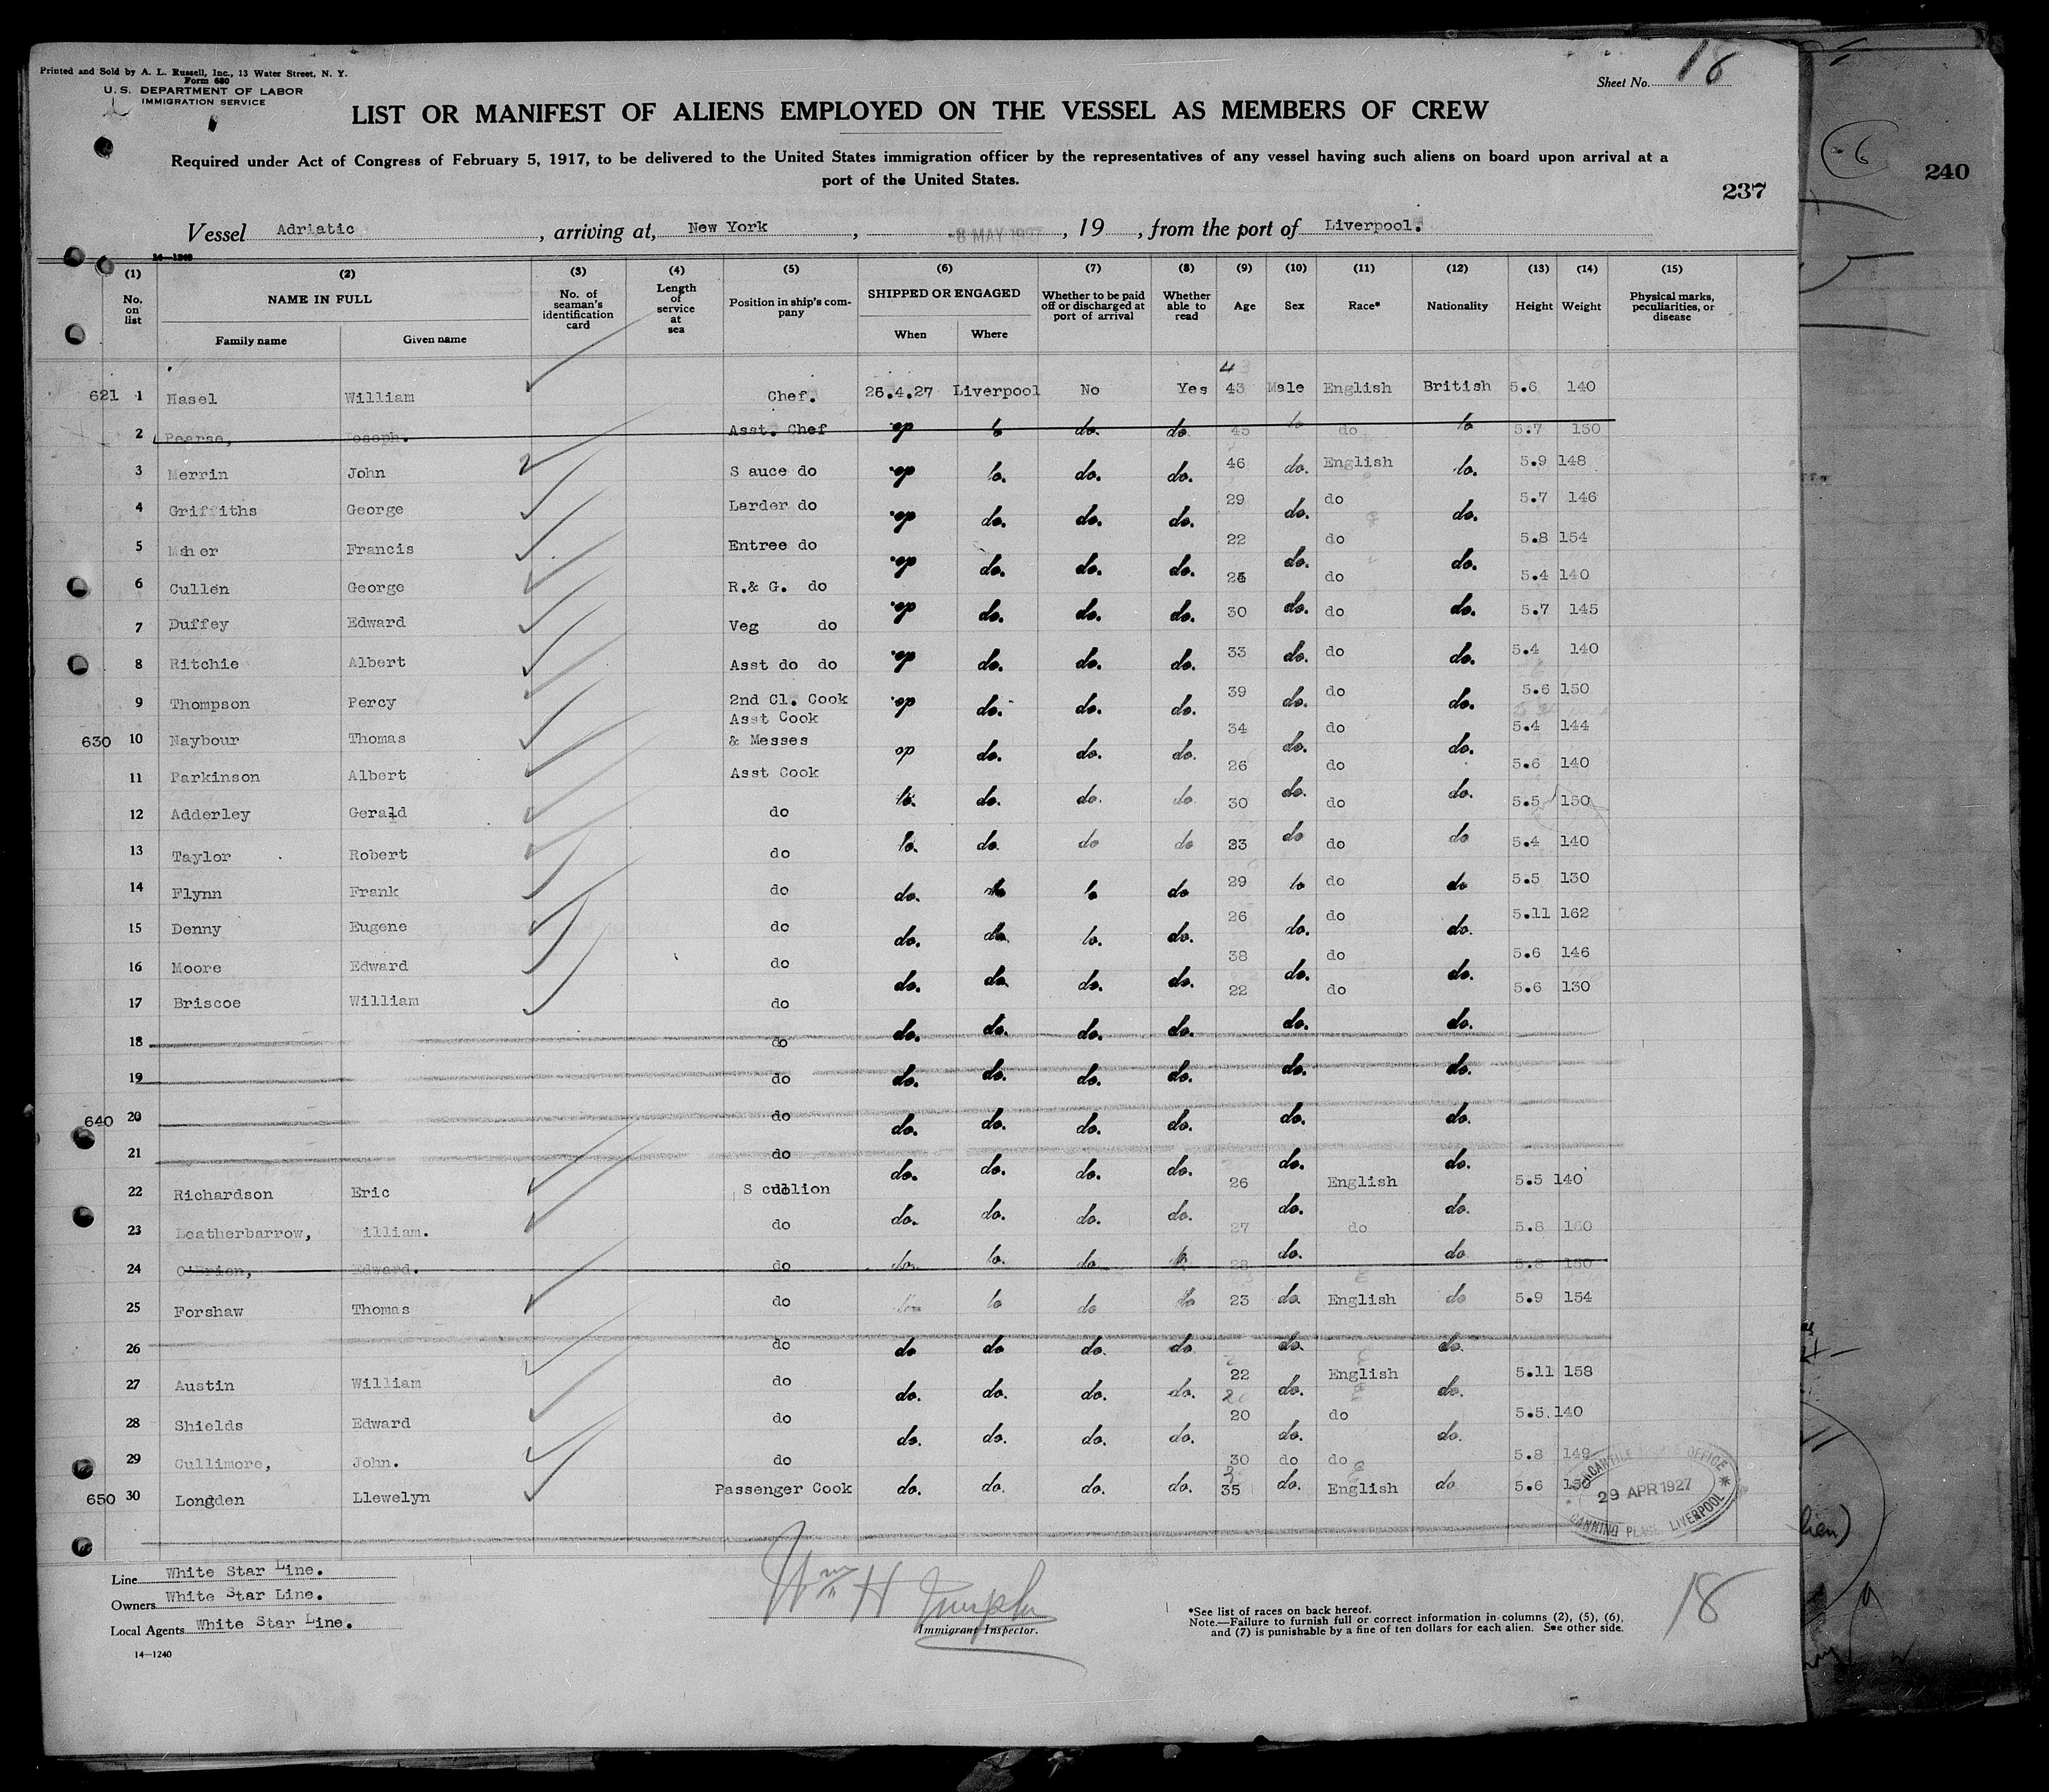 Printed and Sold by A. L. Russell, Inc., 13 Water Street, N. Y.
Form 680
U. S. DEPARTMENT OF LABOR
IMMIGRATION SERVICE
Sheet No. 18
LIST OR MANIFEST OF ALIENS EMPLOYED ON THE VESSEL AS MEMBERS OF CREW
Required under Act of Congress of February 5, 1917, to be delivered to the United States immigration officer by the representatives of any vessel having such aliens on board upon arrival at a
port of the United States.
237
240
Vessel Adriatic, arriving at, New York, -8 MAY 1927, 19 , from the port of Liverpool.
14—1240
(1) (2) (3) (4) (5) (6) (7) (8) (9) (10) (11) (12) (13) (14) (15)
No. on list NAME IN FULL Family name Given name No. of seaman's identification card Length of service at sea Position in ship's company SHIPPED OR ENGAGED When Where Whether to be paid off or discharged at port of arrival Whether able to read Age Sex Race* Nationality Height Weight Physical marks, peculiarities, or disease
621 1 Hasel William Chef. 26.4.27 Liverpool No Yes 43 Male English British 5.6 140
2 Pearse, Joseph. Asst. Chef do do do. do. 45 do do do 5.7 150
3 Merrin John Sauce do do do. do. do. 46 do. English do. 5.9 148
4 Griffiths George Larder do do do. do. do. 29 do. do do. 5.7 146
5 Francis Entree do do do. do. do. 22 do. do do. 5.8 154
6 Cullen George R.& G. do do do. do. do. do. do do. 5.4 140
7 Duffey Edward Veg do do do. do. do. 30 do. do do. 5.7 145
8 Ritchie Albert Asst do do do do. do. do. 33 do. do do. 5.4 140
9 Thompson Percy 2nd Cl. Cook do do. do. do. 39 do. do do. 5.6 150
630 10 Naybour Thomas Asst Cook & Messes do do. do. do. 34 do. do do. 5.4 144
11 Parkinson Albert Asst Cook do. do. do. do. 26 do. do do. 5.6 140
12 Adderley Gerald do do. do. do do 30 do do do 5.5 150
13 Taylor Robert do do. do do do 23 do do do 5.4 140
14 Flynn Frank do do. do do do 29 do do do 5.5 130
15 Denny Eugene do do. do. do. do. 26 do. do do. 5.11 162
16 Moore Edward do do. do. do. do. 38 do. do do. 5.6 146
17 Briscoe William do do. do. do. do. 22 do. do do. 5.6 130
18 do do. do. do. do. do. do.
19 do do. do. do. do. do. do.
640 20 do do. do. do. do. do. do.
21 do do. do. do. do. do. do.
22 Richardson Eric Scullion do. do. do. do. 26 do. English do. 5.5 140
23 Leatherbarrow, William. do do. do. do. do. 27 do. do do 5.8 160
24 O'Brien, Edward. do 28 5.8 150
25 Forshaw Thomas do do do do do 23 do. English do 5.9 154
26 do do do do. do do. do.
27 Austin William do do. do. do. do. 22 do. English do. 5.11 158
28 Shields Edward do do. do. do. do. 20 do. do do. 5.5 140
29 Cullimore, John. do 30 do do 5.8 149
650 30 Longden Llewelyn Passenger Cook do. do. do. do. 35 do. English do 5.6 150
MERCANTILE MARINE OFFICE
29 APR 1927
CANNING PLACE LIVERPOOL
Line White Star Line.
Owners White Star Line.
Local Agents White Star Line.
14—1240
Wm H
Immigrant Inspector.
*See list of races on back hereof.
Note.—Failure to furnish full or correct information in columns (2), (5), (6),
and (7) is punishable by a fine of ten dollars for each alien. See other side.
18